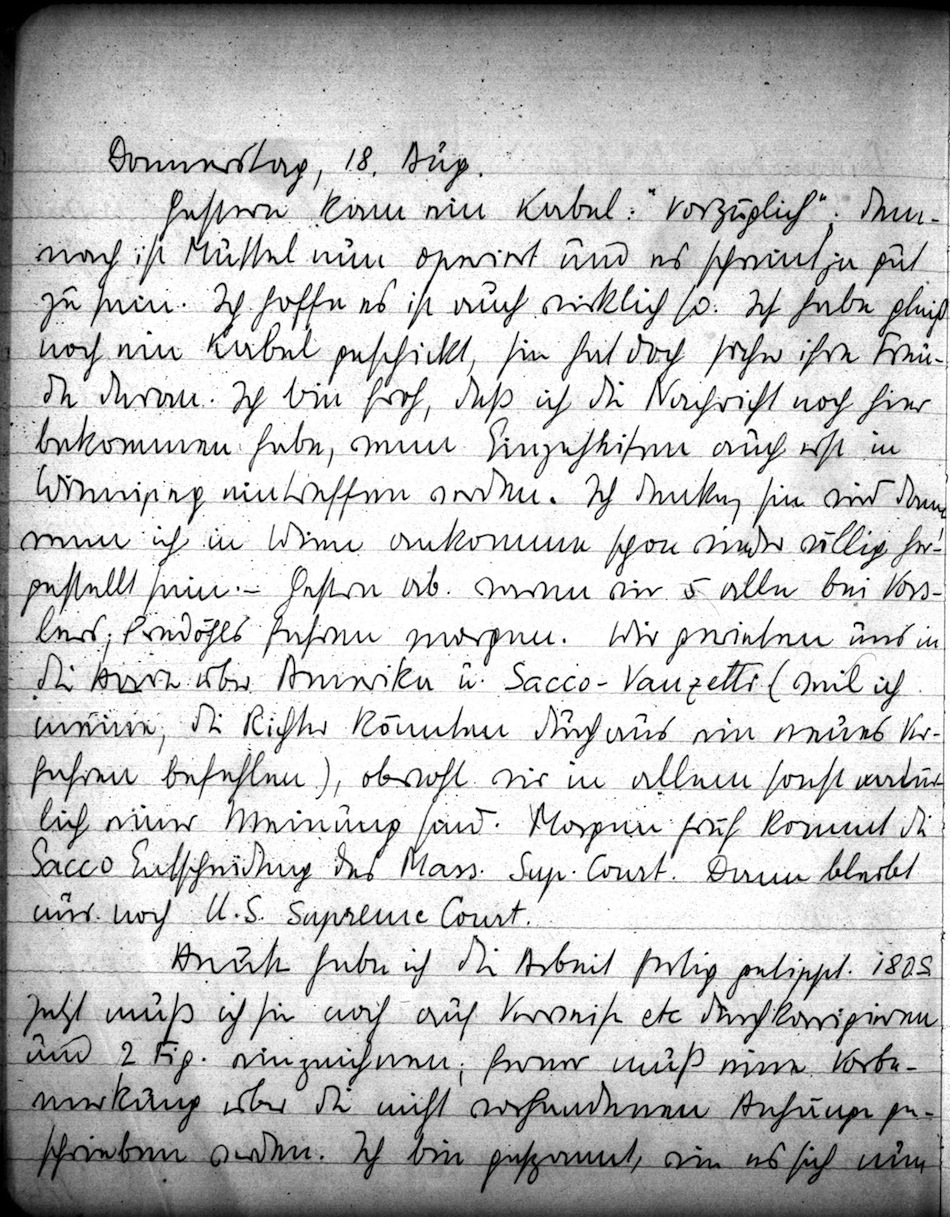 Donnerstag, 18. Aug.
Gestern kam ein Kabel: "Vorzüglich". Dem-
nach ist Muttel nun operiert und es scheint ja gut
zu sein. Ich hoffe es ist auch wirklich so. Ich habe gleich
noch ein Kabel geschickt, sie hat doch sicher ihre Freu-
de daran. Ich bin froh, daß ich die Nachricht noch hier
bekommen habe, wenn Einzelheiten auch erst in
Winnipeg eintreffen werden. Ich denke, sie wird dann,
wenn ich in Wien ankomme schon wieder völlig her-
gestellt sein. – Gestern ab. waren wir 5 alle bei
fahren morgen. Wir gerieten uns in
die Haare über Amerika u. Sacco-Vanzetti (weil ich
meine, die Richter könnten durchaus ein neues Ver-
fahren befehlen), obwohl wir in allem sonst natür-
lich einer Meinung sind. Morgen früh kommt die
Sacco Entscheidung des Mass. Sup. Court. Dann bleibt
nur noch U.S. Supreme Court.
Heute habe ich die Arbeit fertig getippt. 180S
Jetzt muß ich sie noch auf Verweise etc durchkorrigieren
und 2 Fig. einzeichnen; ferner muß eine Vorbe-
merkung über die nicht vorhandenen Anhänge ge-
schrieben werden. Ich bin gespannt, wie es sich nun